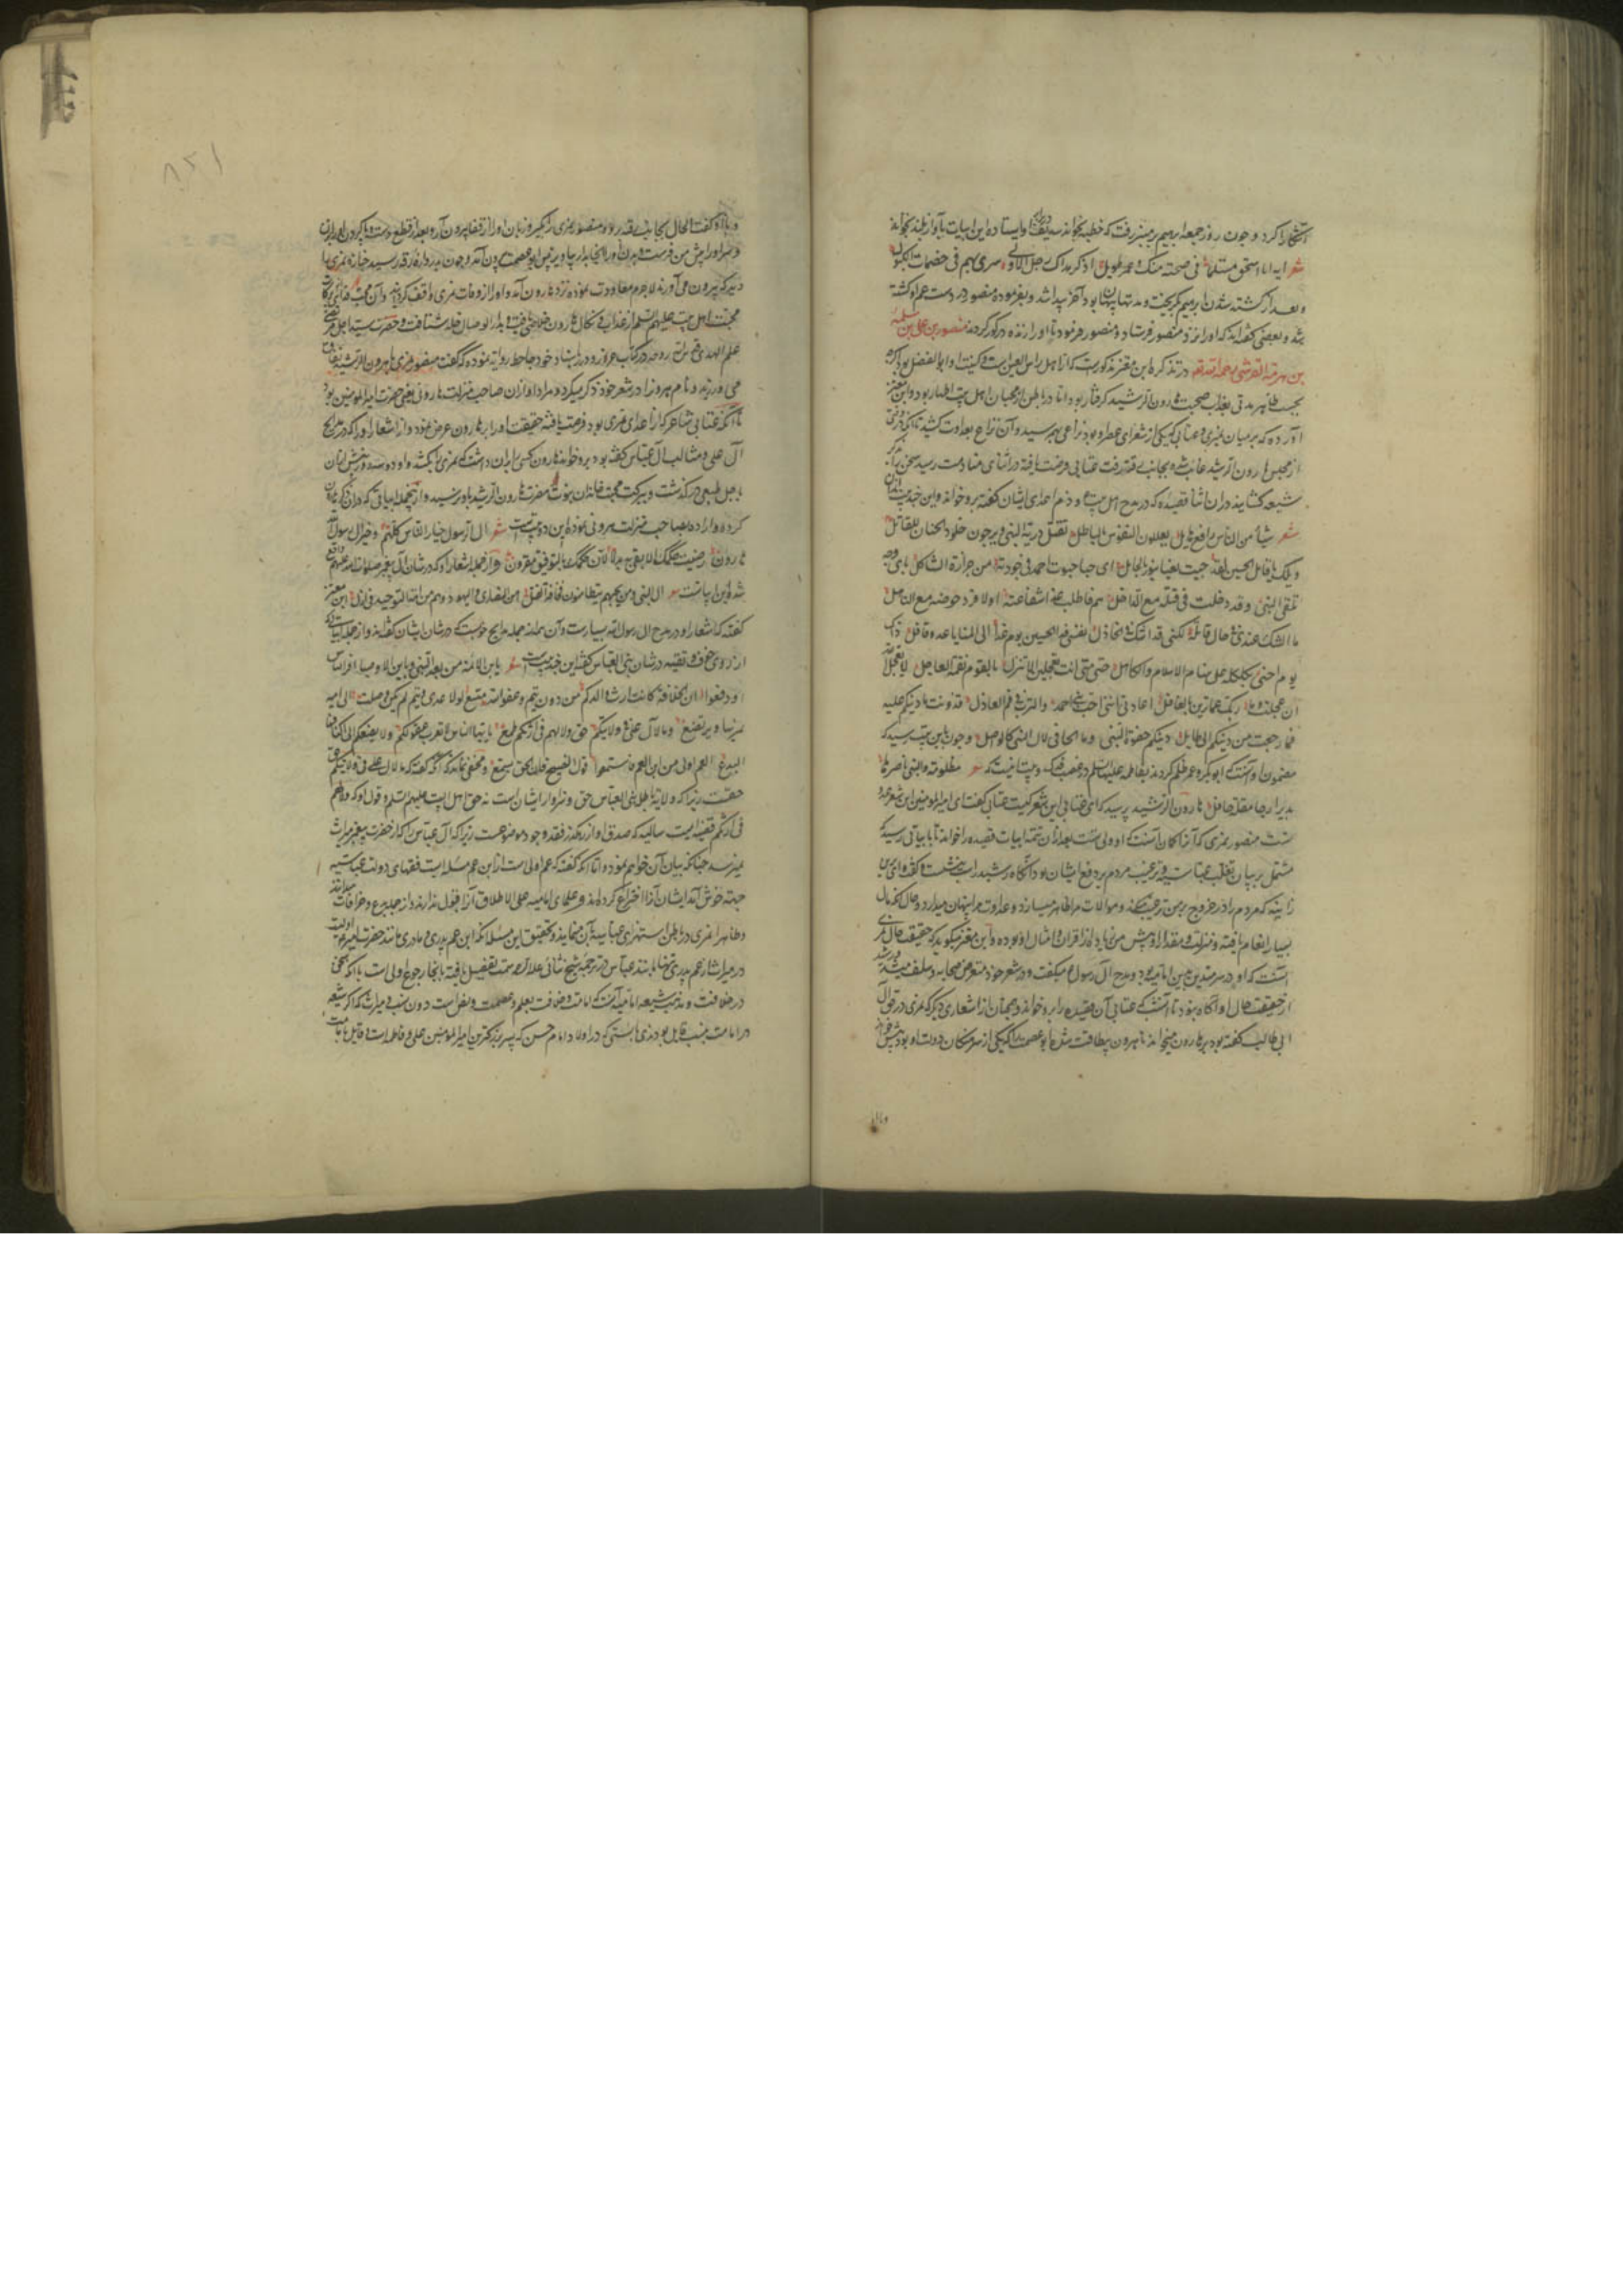 آشکارا کرد و چون روز جمعه ابرهیم بر منبر رفت که خطبه بخواند سدیف در برابر او ایستاده این ابیات بآواز بلند بخواند
شعر ایه ابا اسحق ملیتها فی صحة منک و عمر طویل اذکر هداک الله ذحل الاولی سری بهم فی مصمتات الکبول
و بعد از کشته شدن ابرهیم بگریخت و مدتها پنهان بود آخر پیدا شد و بفرموده منصور در دست عم او کشته
شد و بعضی گفته‌اند که او را نزد منصور فرستاد و منصور فرمود تا او را زنده در گور کردند منصور بن علی بن سلمه
بن القرشی رحمه الله در تذکره ابن معتز مذکورست که از اهل راس العین است و کنیت او ابو الفضل بود اگرچه
بحسب ظاهر مدتی بعذاب صحبت هارون الرشید گرفتار بود اما در باطن از محبان اهل بیت اطهار بود و ابن معتز
آورده که در میان نمری و عتابی که یکی از شعرای عصر او بود نزاعی بهم رسید و آن نزاع بعداوت کشید تا آنکه نمری
از مجلس هارون الرشید غایب شده بجانب رقه رفت عتابی فرصت یافته در اثنای منادمت رسید سخن را بذکر
شیعه کشانید در آن اثنا قصیده که در مدح اهل بیت و ذم اعدای ایشان گفته برو خواند و این چند بیت از آن
شعر شاء من الناس راتع هامل یعللون النفوس بالباطل تقتل ذریة النبی و یرجون خلود الجنان للقاتل
ویلک یا قاتل الحسین لقد جئت بعبء ینوء بالحامل ای حباء حبوت احمد فی حفرته من حرارة الثاکل بای وجه
تلقی النبی و قد دخلت فی قتله مع الداخل هلم فاطلب غدا شفاعته او لا فرد حوضه مع الناهل
ما الشک عندی فی حال قاتله لکننی قد اشک فی الخاذل نفسی فداء الحسین یوم غدا الی المنایا غدو قافل ذلک
یوم انحی بکلکله علی سنام الاسلام و الکاهل حتی متی انت تعجلین الا تنزل بالقوم نقمة العاجل لا یعجل الله
ان عجلت و ما ربک عما ترین بالغافل اعاذلی اننی احب بنی احمد و الترب فی فم العاذل قد دنت ما دینکم علیه
فما رجعت من دینکم الی طایل دینکم جفوة النبی و ما الجافی لال النبی کالواصل و چون باین بیت رسید که
مضمون او آنست که ابو بکر و عمر ظلم کردند بفاطمه علیها السلم در غصب فدک و بیت اینست که شعر مظلومة و النبی ناصرها
تدیر ارجاء مقلة حافل هارون الرشید پرسید که ای عتابی این شعر کیست عتابی گفت ای امیر المؤمنین این شعر عدو
تست منصور نمری که آنرا گمان آنست که او ولی تست بعد از آن تتمه ابیات قصیده را خواند تا بابیاتی رسید که
مشتمل بر بیان تغلب عباسیه و ترغیب مردم بر دفع ایشان بود آنگاه رشید راست بنشست و گفت وای برین
زانیه که مردم را در خروج بر من ترغیب میکند و موالات مرا ظاهر میسازد و عداوت مرا پنهان میدارد و حال آنکه مال
بسیار انعام یافته و منزلت و مقدار او پیش من زیاده از اقران و امثال او بوده و ابن معتز میگوید که حقیقت حال نمری
آنست که او در سر متدین بدین امامیه بود و مدح آل رسول میگفت و در شعر خود متعرض صحابه و سلف میشد و رشید
از حقیقت حال او آگاه نبود تا آنشب که عتابی آن قصیده را برو خواند و همچنان از اشعاری دیگر که نمری در حق آل
ابی طالب گفته بود بر هارون میخواند تا هرون بیطاقت شد با ابو عصمه که یکی از سرهنگان دولت او بود پیش خواند
و باو گفت الحال بجانب رقه رو و منصور نمری را بگیر و زبان او را از قفا بیرون آر و بعد از قطع دست و پا گردن او را بزن
و سر او را پیش من فرست و بدن او را آنجا بدار بیاویز پس ابو عصمه بیرون آمد و چون بدروازه رقه رسید جنازه نمری را
دید که بیرون می‌آورند لاجرم معاودت نموده نزد هارون آمد و او را از وفات نمری واقف گردانید و آن محب فدائی ببرکات
محبت اهل بیت علیهم السلم از عذاب و نکال هارون خلاصی یافت و بدار الوصال خلد شتافت و حضرت سید اجل مرتضی
علم الهدی در کتاب غرر و درر باسناد خود بجاحظ روایة نموده که گفت منصور نمری با هرون الرشید نفاق
می ورزید و نام هرون را در شعر خود ذکر میکرد و مراد او از آن صاحب منزلت هارونی یعنی حضرت امیر المؤمنین بود
تا آنکه عتابی شاعر که از اعدای نمری بود فرصت یافته حقیقت او را بر هارون عرض نمود و از اشعار او را که در مدایح
آل علی و مثالب آل عباس گفته بود برو خواند هارون کسی را بران داشت که نمری را بکشد و او دو سه روز پیش از آن
باجل طبیعی درگذشت و ببرکت محبت خاندان نبوت مضرت هارون الرشید باو نرسید و از جمله ابیاتی که در آن ذکر هارون
کرده و اراده صاحب منزلت هرونی نموده این دو بیت است شعر آل الرسول خیار الناس کلهم و خیر آل رسول الله
هارون رضیت حکمک لا ابغی به بدلا لان حکمک بالتوفیق مقرون و از جمله اشعار او که در شان آل پیغمبر صلوات الله علیهم واقع
شده این ابیاتست شعر آل النبی و من یحبهم یتطامنون مخافة القتل امن النصاری و الیهود و هم من امة التوحید فی ازل ابن معتز
گفته که اشعار او در مدح آل رسول الله بسیارست و آن همه از جمله مدایح خوبست که در شان ایشان گفته‌اند و از جمله ابیات که
از روی خوف و تقیه در شان بنی العباس گفته این چند بیت است شعر یا بن الائمة من بعد النبی و یا بن الاوصیاء اقر الناس
او دفعوا ان الخلافة کانت ارث والدکم من دون تیم و عفو الله متسع لولا عدی و تیم لم تکن وصلت الی امیه
تمریها و ترتضع و ما لآل علی فی ولایتکم حق و لا لهم فی ارثکم طمع یا ایها الناس لا تعزب عقولکم و لا یضیفکم الی اکنافها
البدع العم اولی من ابن العم فاستمعوا قول النصیح فان الحق یستمع و مخفی نماند که آنکه گفته که ما لآل علی فی ولایتکم حق
حقست زیرا که ولایة باطل بنی العباس حق و سزاوار ایشان است نه حق اهل البیت علیهم السلم و قول او که و لا لهم
فی ارثکم قضیه ایست سالبه که صدق او از رهگذر فقد وجود موضوعست زیرا که آل عباس را که از حضرت پیغمبر میراث
نمیرسد چنانکه بیان آن خواهم نمود و اما آنکه گفته که عم اولی است از ابن عم مسئله ایست فقهای دولت عباسیه
جهت خوش آمد ایشان آنرا اختراع کرده‌اند و علمای امامیه علی الاطلاق آنرا قبول ندارند و از جمله بدع و خرافات میدانند
و ظاهرا نمری در باطن استهزای عباسیه بآن مینماید و تحقیق این مسئله آنکه ابن عم پدری و مادری مانند حضرت امیر اولیست
در میراث از عم پدری تنها مانند عباس و در ترجمه شیخ ثانی علاء الدوله سمت تفصیل یافته بآنجا رجوع اولی است با آنکه سخن
در خلافت و مذهب شیعه امامیه آنست که امامت و خلافت بعلم و عصمت و نص است دون نسب و میراث که اگر شیعه
در امامت بنسب قایل بودندی بایستی که در اولاد امام حسن که پسر بزرگترین امیر المؤمنین علی و فاطمه است قایل بامامت
وباو
۸۲۱